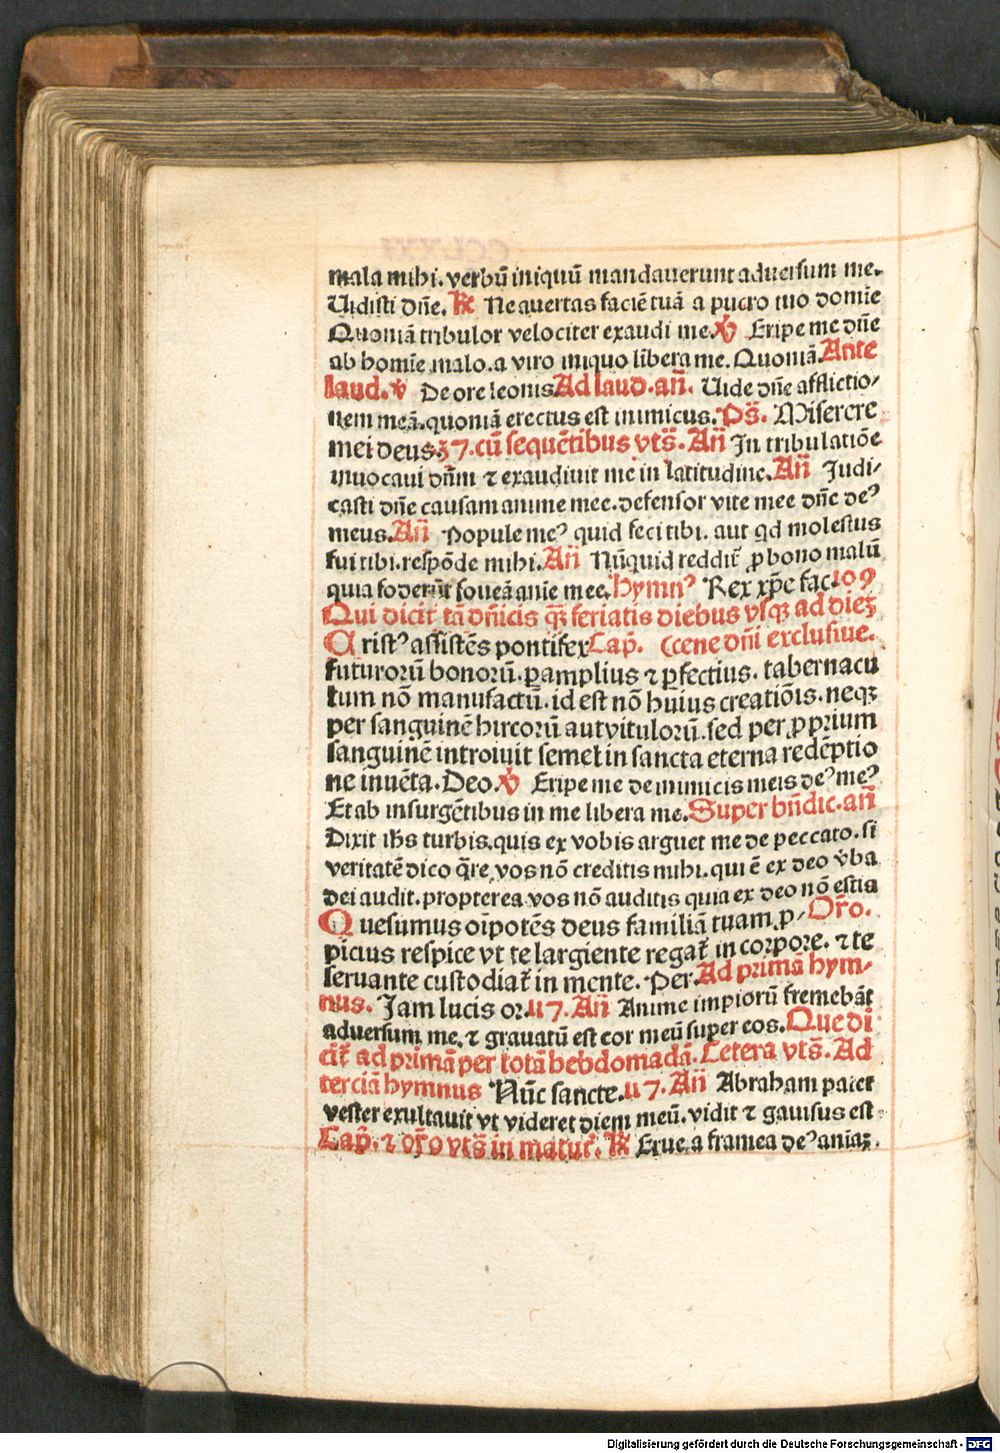 mala mihi. verbū iniquū mandaverunt adversum me.
Uidisti dn̄e. ℟ Ne avertas faciē tuā a puero tuo domīe
Quoniā tribulor velociter exaudi me. ℣ Eripe me dn̄e
ab homīe malo. a viro iniquo libera me. Quoniā. Ante
laud. ℣ De ore leonis Ad laud. an̄. Uide dn̄e afflictio⸗
nem meā. quoniā erectus est inimicus. Ps̄. Miserere
mei deus. 37. cū sequētibus vts̄. An̄ In tribulatiōe
invocavi dn̄m ⁊ exaudivit me in latitudine. An̄ Judi⸗
casti dn̄e causam anime mee. defensor vite mee dn̄e deꝰ
meus. An̄ Popule meꝰ quid feci tibi. aut qd molestus
fui tibi. respōde mihi. An̄ Nūquid reddit᷑ ꝓ bono malū
quia foderūt foveā anīe mee. hymnꝰ Rex xp̄e fac. 109
Qui dicit᷑ tā dn̄icis qꝫ̄ feriatis diebus vsqꝫ ad dieꝫ
Cristꝰ assistēs pontifex Cap̄. (cene dn̄i exclusive.
futurorū bonorū. ꝑ amplius ⁊ ꝑfectius. tabernacu
lum nō manufactū. id est nō huius creatiōis. neqꝫ
per sanguinē hircorū aut vitulorū. sed per ꝓprium
sanguinē introiuit semel in sancta eterna redēptio
ne invēta. Deo. ℣ Eripe me de inimicis meis deꝰ meꝰ
Et ab insurgētibus in me libera me. Super bn̄dic. an̄
Dixit ih̄s turbis. quis ex vobis arguet me de peccato. si
veritatē dico q̄re vos nō creditis mihi. qui ē ex deo v̄ba
dei audit. propterea vos nō auditis quia ex deo nō estis
Quesumus oīpotēs deus familiā tuam ꝓ⸗ Or̄o.
picius respice vt te largiente regat᷑ in corpore. ⁊ te
servante custodiat᷑ in mente. Per. Ad primā hym⸗
nus. Jam lucis or. 117. An̄ Anime impiorū fremebāt
adversum me. ⁊ gravatū est cor meū super eos. Que di
cit᷑ ad primā per totā hebdomadā. Cetera vts̄. Ad
terciā hymnus Nūc sancte. 117. An̄ Abraham pater
vester exultavit vt videret diem meū. vidit ⁊ gavisus est.
Cap̄. ⁊ or̄o vts̄ in matut᷑. ℟ Erue a framea deꝰ aniaꝫ.
Digitalisierung gefördert durch die Deutsche Forschungsgemeinschaft - DFG